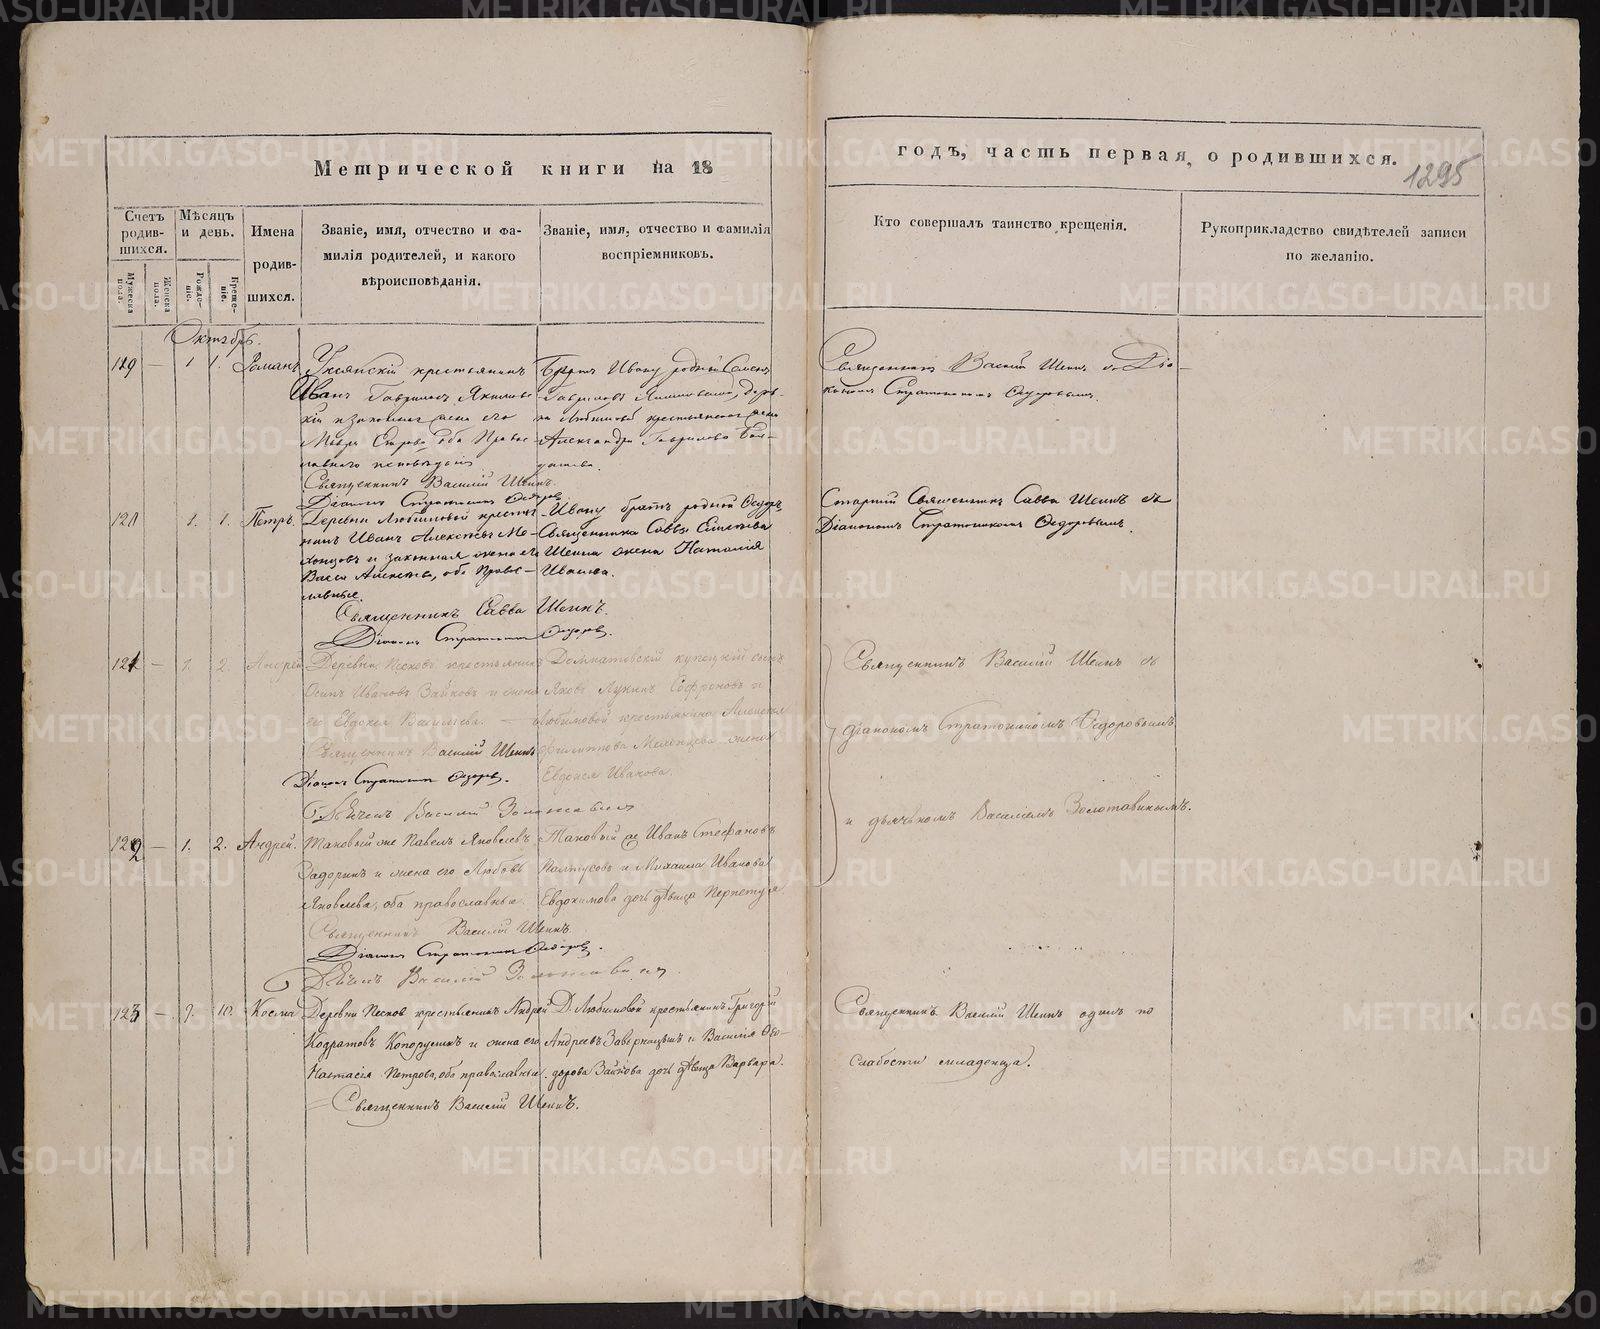 Метрической книги на 18
годъ, часть первая, о родившихся.
1295
Счетъ родив-
шихся.
Мужеска пола.
Женска пола.
Мѣсяцъ и день.
Рожде-
ніе.
Креще-
ніе.
Имена
родив-
шихся.
Званіе, имя, отчество и фа-
милія родителей, и какого
вѣроисповѣданія.
Званіе, имя, отчество и фамилія
воспріемниковъ.
Кто совершалъ таинство крещенія.
Рукоприкладство свидѣтелей записи
по желанію.
Октябрь.
119 — 1 1. Романъ
крестьянинъ
Иванъ Гавриловъ
и законная жена его
оба Правос-
лавнаго исповѣданія
Священникъ Василій Шеинъ.
Діаконъ Стратоникъ Ѳедоровъ
Ивану родной
Гавриловъ
крестьянская жена
Александра Гаврилова
Священникъ Василій Шеинъ съ Діа-
кономъ Стратоникомъ Ѳедоровымъ.
120 1. 1. Петръ.
Деревни Любимовой крестья-
нинъ Иванъ Алексѣевъ Ме-
и законная жена его
Васса Алексѣева, оба Правос-
лавные.
Священникъ Савва Шеинъ.
Діаконъ Стратоникъ Ѳедоровъ.
Ивану братъ родной Ѳедоръ,
Священника Саввы
Шеина жена Наталія
Иванова.
Старшій Священникъ Савва Шеинъ съ
Діакономъ Стратоникомъ Ѳедоровымъ.
121 — 1. 2. Андрей
Деревни Песковъ крестьянинъ
Осипъ Ивановъ Зайковъ и жена
его Евдокея Васильева.
Священникъ Василій Шеинъ
Діаконъ Стратоникъ Ѳедоровъ.
Дьячекъ Василій Золотавинъ
Долматовскій купецкій сынъ
Яковъ Лукинъ Софроновъ и
Любимовой крестьянина Алексея
Филиппова Мелехцева жена
Евдокея Иванова.
Священникъ Василій Шеинъ съ
діакономъ Стратоникомъ Ѳедоровымъ
и дьячкомъ Василіемъ Золотавинымъ.
122 — 1. 2. Андрей.
Таковый же Павелъ Яковлевъ
Задоринъ и жена его Любовь
Яковлева, оба православные.
Священникъ Василій Шеинъ.
Діаконъ Стратоникъ Ѳедоровъ.
Дьячекъ Василій Золотавинъ.
Таковый же Иванъ Стефановъ
и Михаила Иванова
Евдокимова дочь дѣвица Перпетуя
123 — 9. 10. Косма
Деревни Песковъ крестьянинъ Андрей
Кодратовъ Копорушкинъ и жена его
Настасія Петрова, оба православные.
Священникъ Василій Шеинъ.
Д. Любимовой крестьянинъ Григорій
Андреевъ и Василія Ѳео-
дорова Зайкова дочь дѣвица Варвара.
Священникъ Василій Шеинъ одинъ по
слабости младенца.
METRIKI.GASO-URAL.RU